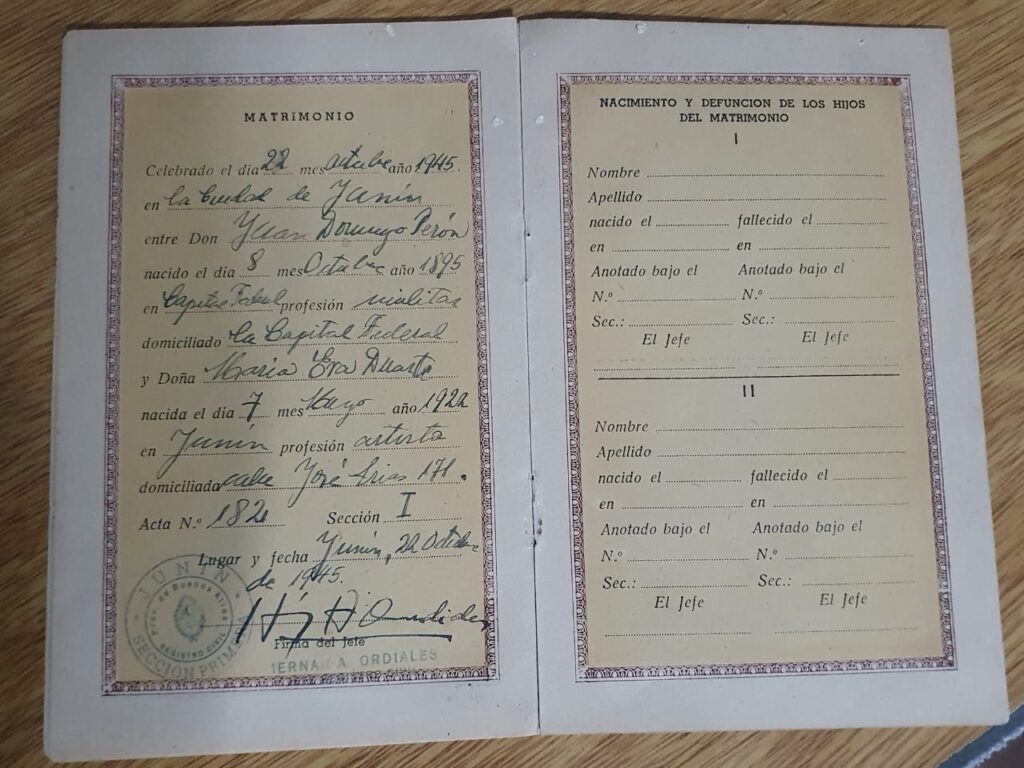 MATRIMONIO
Celebrado el dia 22 mes octubre año 1945.
en la Ciudad de Junín
entre Don Juan Domingo Perón
nacido el dia 8 mes Octubre año 1895
en Capital Federal profesión militar
domiciliado la Capital Federal
y Doña María Eva Duarte
nacida el dia 7 mes Mayo año 1922
en Junín profesión artista
domiciliada calle José Arias 171.
Acta N.º 182 Sección I
Lugar y fecha Junín, 22 Octubre
de 1945.
Firma del Jefe
HERNAN A. ORDIALES
JUNIN
Prov. de Buenos Aires
REGISTRO CIVIL
SECCION PRIME
NACIMIENTO Y DEFUNCION DE LOS HIJOS
DEL MATRIMONIO
I
Nombre
Apellido
nacido el fallecido el
en en
Anotado bajo el Anotado bajo el
N.º N.º
Sec.: Sec.:
El Jefe El Jefe
II
Nombre
Apellido
nacido el fallecido el
en en
Anotado bajo el Anotado bajo el
N.º N.º
Sec.: Sec.:
El Jefe El Jefe